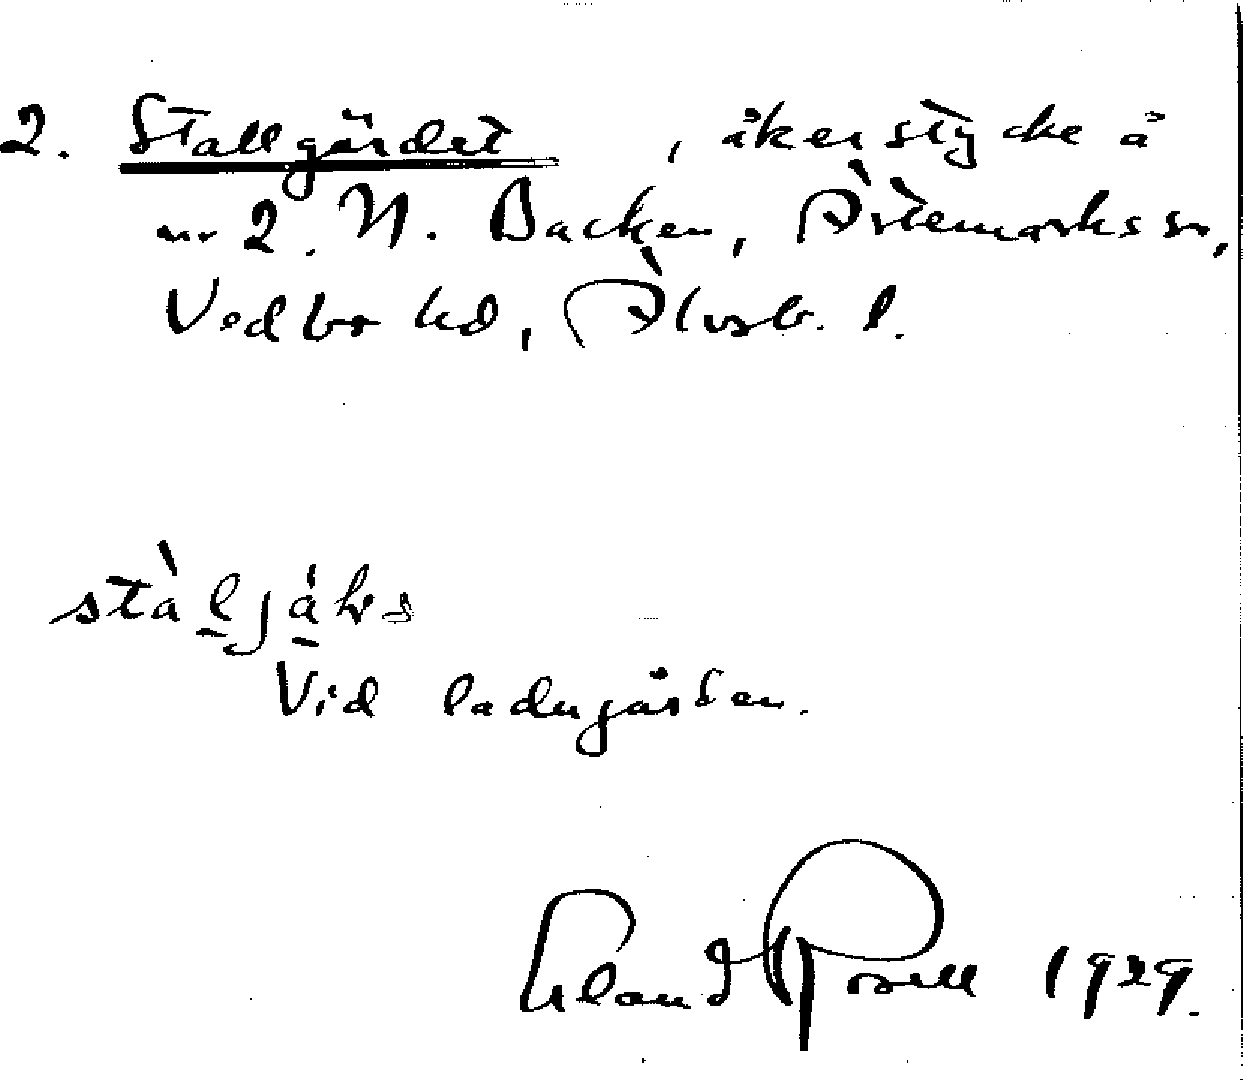 2. Stallgärdet, åkerstycke å
nr 2 N. Backen, Ärtemarks sn,
Vedbo hd, Älvsb. l.
stàl̲já̲ḷs
Vid ladugården.
Erland Rosell 1929.